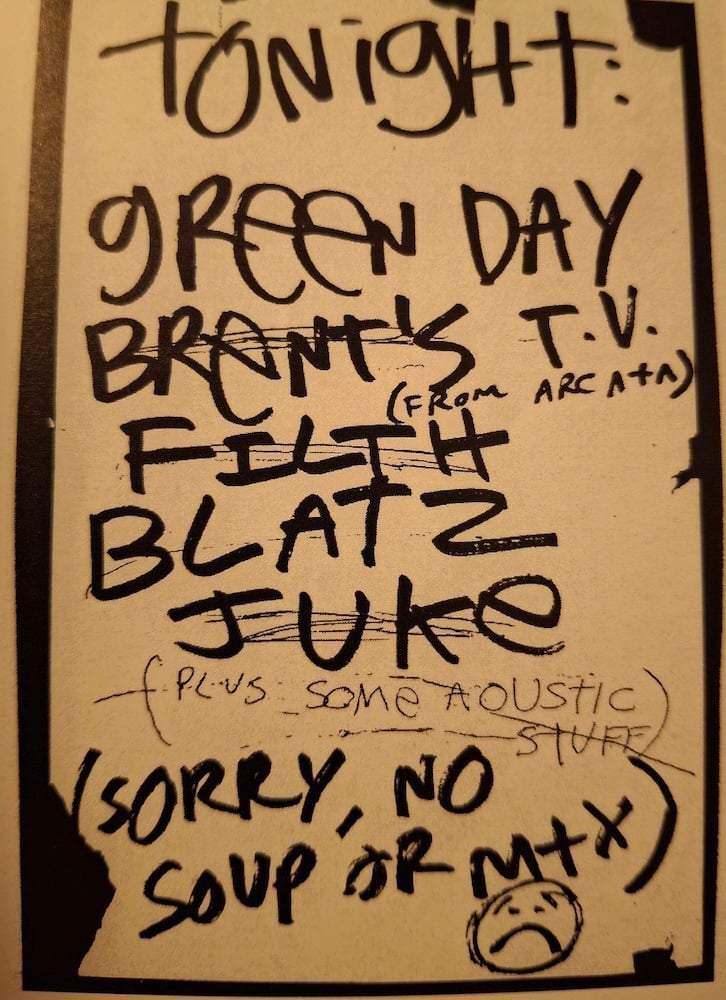 TONiGHT:
GREEN DAY
BRENT'S T.V.
(FROM ARCATA)
FILTH
BLATZ
JUKE
(PLUS SOME AOUSTIC
STUFF)
(SORRY, NO
SOUP OR MTX)